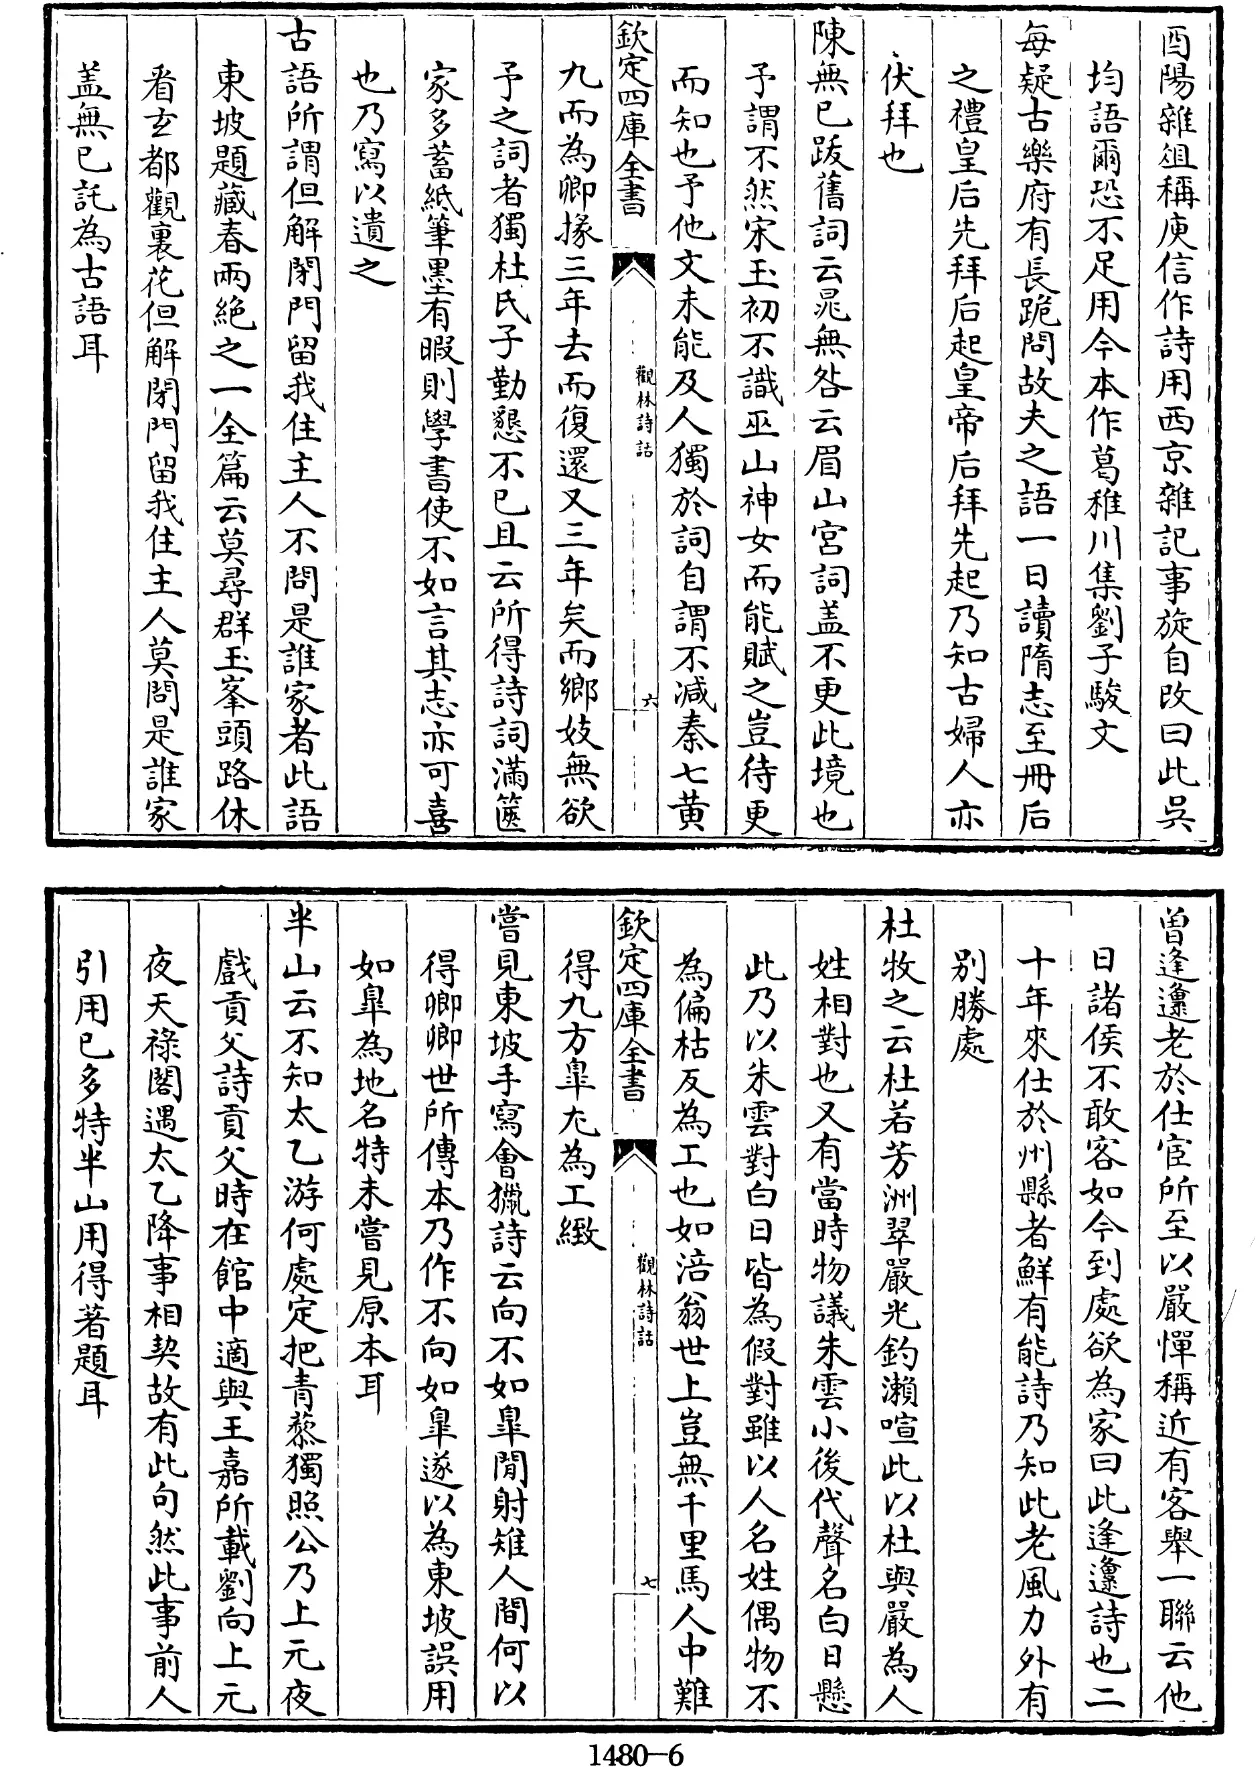 酉陽雜俎稱庾信作詩用西京雜記事旋自改曰此吳
均語爾恐不足用今本作葛稚川集劉子駿文
每疑古樂府有長跪問故夫之語一日讀隋志至冊后
之禮皇后先拜后起皇帝后拜先起乃知古婦人亦
伏拜也
陳無已跋舊詞云晁無咎云眉山宮詞盖不更此境也
予謂不然宋玉初不識巫山神女而能賦之豈待更
而知也予他文未能及人獨於詞自謂不減秦七黄
欽定四庫全書
觀林詩話
六
九而為卿掾三年去而復還又三年矣而鄉妓無欲
予之詞者獨杜氏子勤懇不已且云所得詩詞滿篋
家多蓄紙筆墨有暇則學書使不如言其志亦可喜
也乃寫以遺之
古語所謂但解閉門留我住主人不問是誰家者此語
東坡題藏春兩絶之一全篇云莫尋群玉峯頭路休
看玄都觀裏花但解閉門留我住主人莫問是誰家
盖無已託為古語耳
曽逢邍老於仕宦所至以嚴憚稱近有客舉一聯云他
日諸侯不敢客如今到處欲為家曰此逢邍詩也二
十年來仕於州縣者鮮有能詩乃知此老風力外有
别勝處
杜牧之云杜若芳洲翠嚴光釣瀨喧此以杜與嚴為人
姓相對也又有當時物議朱雲小後代聲名白日懸
此乃以朱雲對白日皆為假對雖以人名姓偶物不
為偏枯反為工也如涪翁世上豈無千里馬人中難
欽定四庫全書
觀林詩話
七
得九方臯尤為工緻
嘗見東坡手寫會獵詩云向不如臯閒射雉人間何以
得卿卿世所傳本乃作不向如臯遂以為東坡誤用
如臯為地名特未嘗見原本耳
半山云不知太乙游何處定把青藜獨照公乃上元夜
戲貢父詩貢父時在館中適與王嘉所載劉向上元
夜天祿閣遇太乙降事相契故有此句然此事前人
引用已多特半山用得著題耳
1480-6